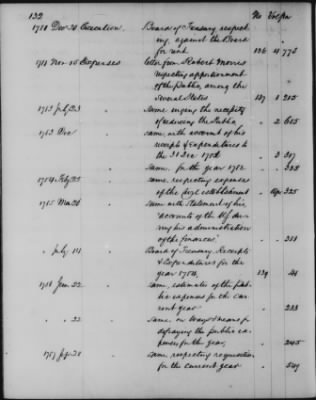 132 No Vol pa
1780 Dec 20 Execution. Board of Treasury respect
ing, against the Board
for rent 136 4 773
1781 Nov 10 Expenses letter from Robert Morris
respecting apportionment
of the Public, among the
several States 137 1 205
1783 July 23 same urging the necessity
of reducing the Public, - 2 605
1783 Dec same, with account of his
receipts & expenditures to
the 31 Dec 1781 - 2 307
same, for the year 1782. - - 333
1784 Feb 25 same, respecting expenses
of the first establishment - 325
1785 Mar 21 same with Statement of his
"accounts of the US, du
ring his administration
of the finances." - - 251
" July 14 Board of Treasury, Receipts
& Expenditures for the
year 1784, 139 - 41
1786 Jun 22 same, estimates of the pub
lic expenses for the cur
rent year - - 233
" " 22 same on Ways & means for
defraying the public ex
penses for the year, - - 245
1787 same respecting requisition
for the current year - - 549